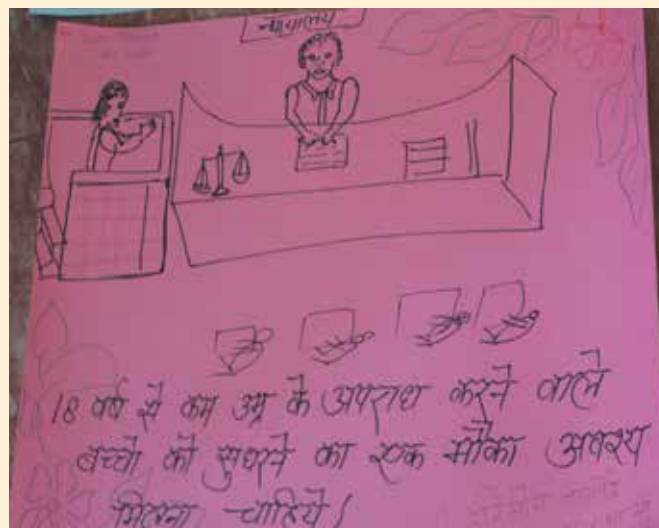 न्यायालय
18 वर्ष से कम उम्र के अपराध करने वाले
बच्चो को सुधरने का एक मौका अवश्य
मिलना चाहिये।